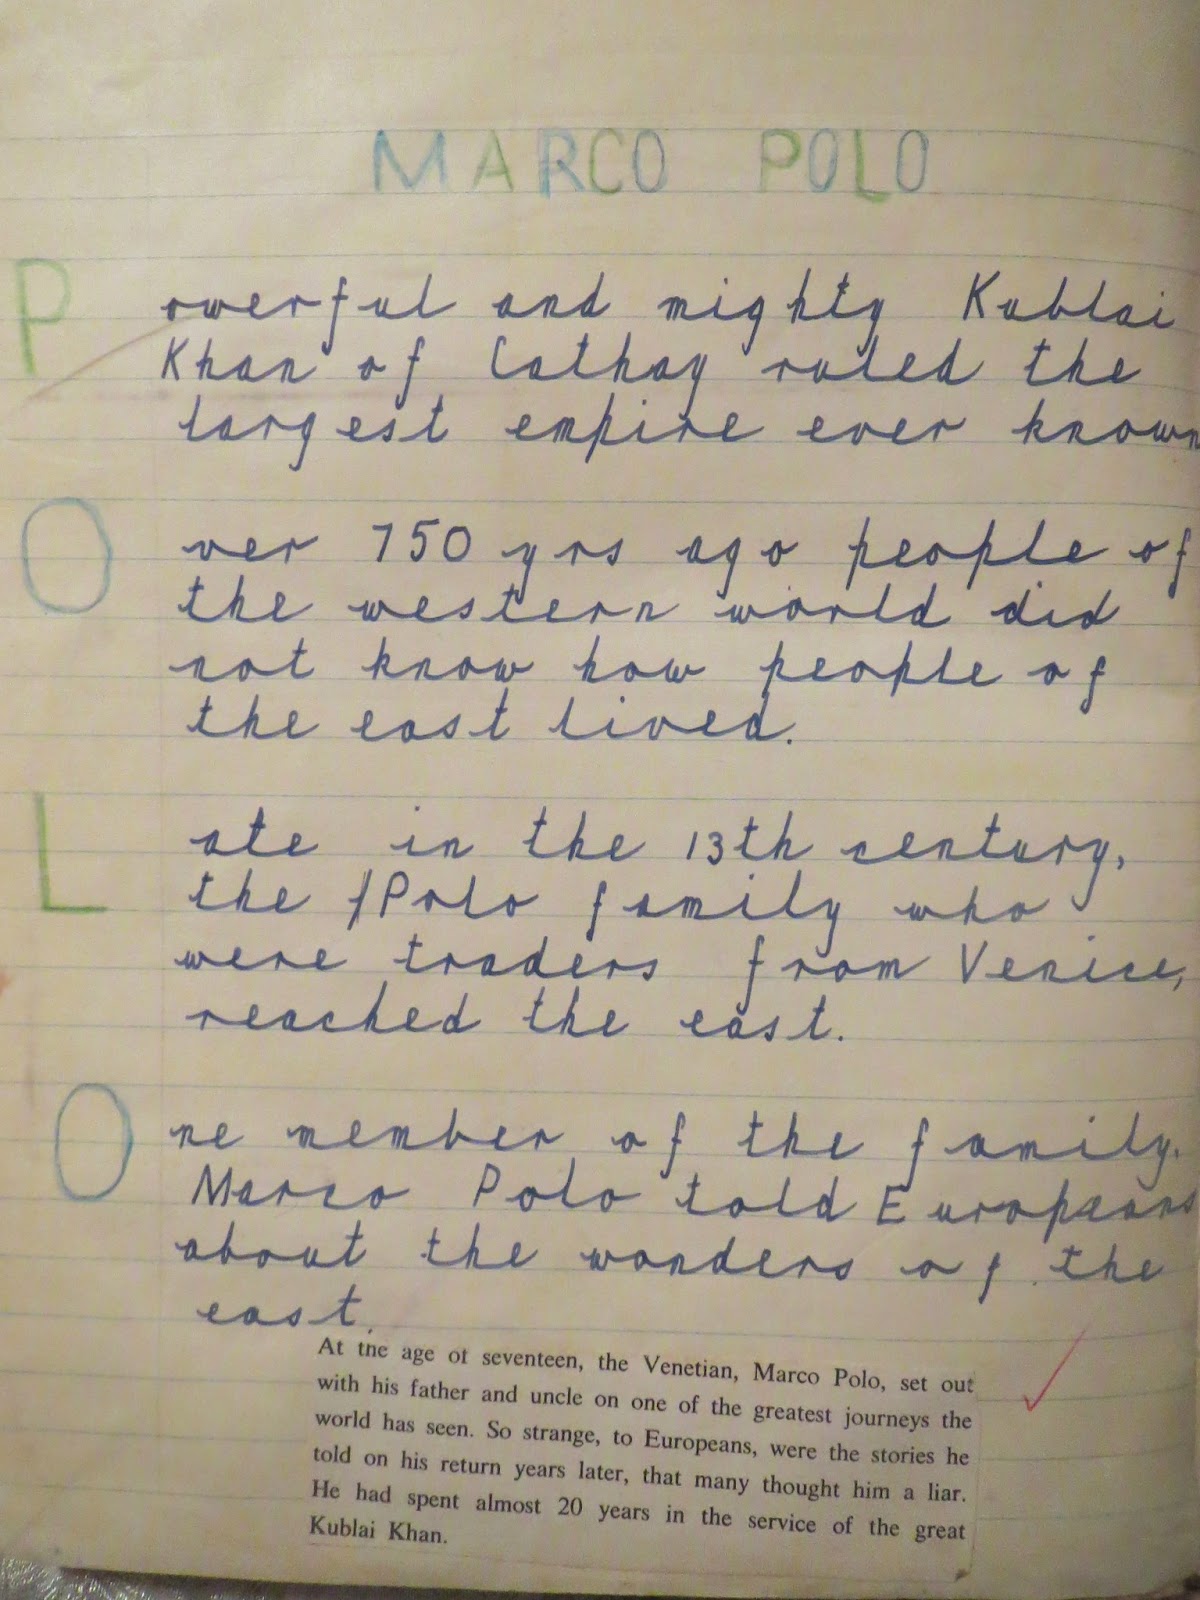 MARCO POLO
Powerful and mighty Kublai
Khan of Cathay ruled the
largest empire ever known
Over 750 yrs ago people of
the western world did
not know how people of
the east lived.
Late in the 13th century,
the Polo family who
were traders from Venice,
reached the east.
One member of the family.
Marco Polo told Europeans
about the wonders of the
east.
At the age of seventeen, the Venetian, Marco Polo, set out
with his father and uncle on one of the greatest journeys the
world has seen. So strange, to Europeans, were the stories he
told on his return years later, that many thought him a liar.
He had spent almost 20 years in the service of the great
Kublai Khan.